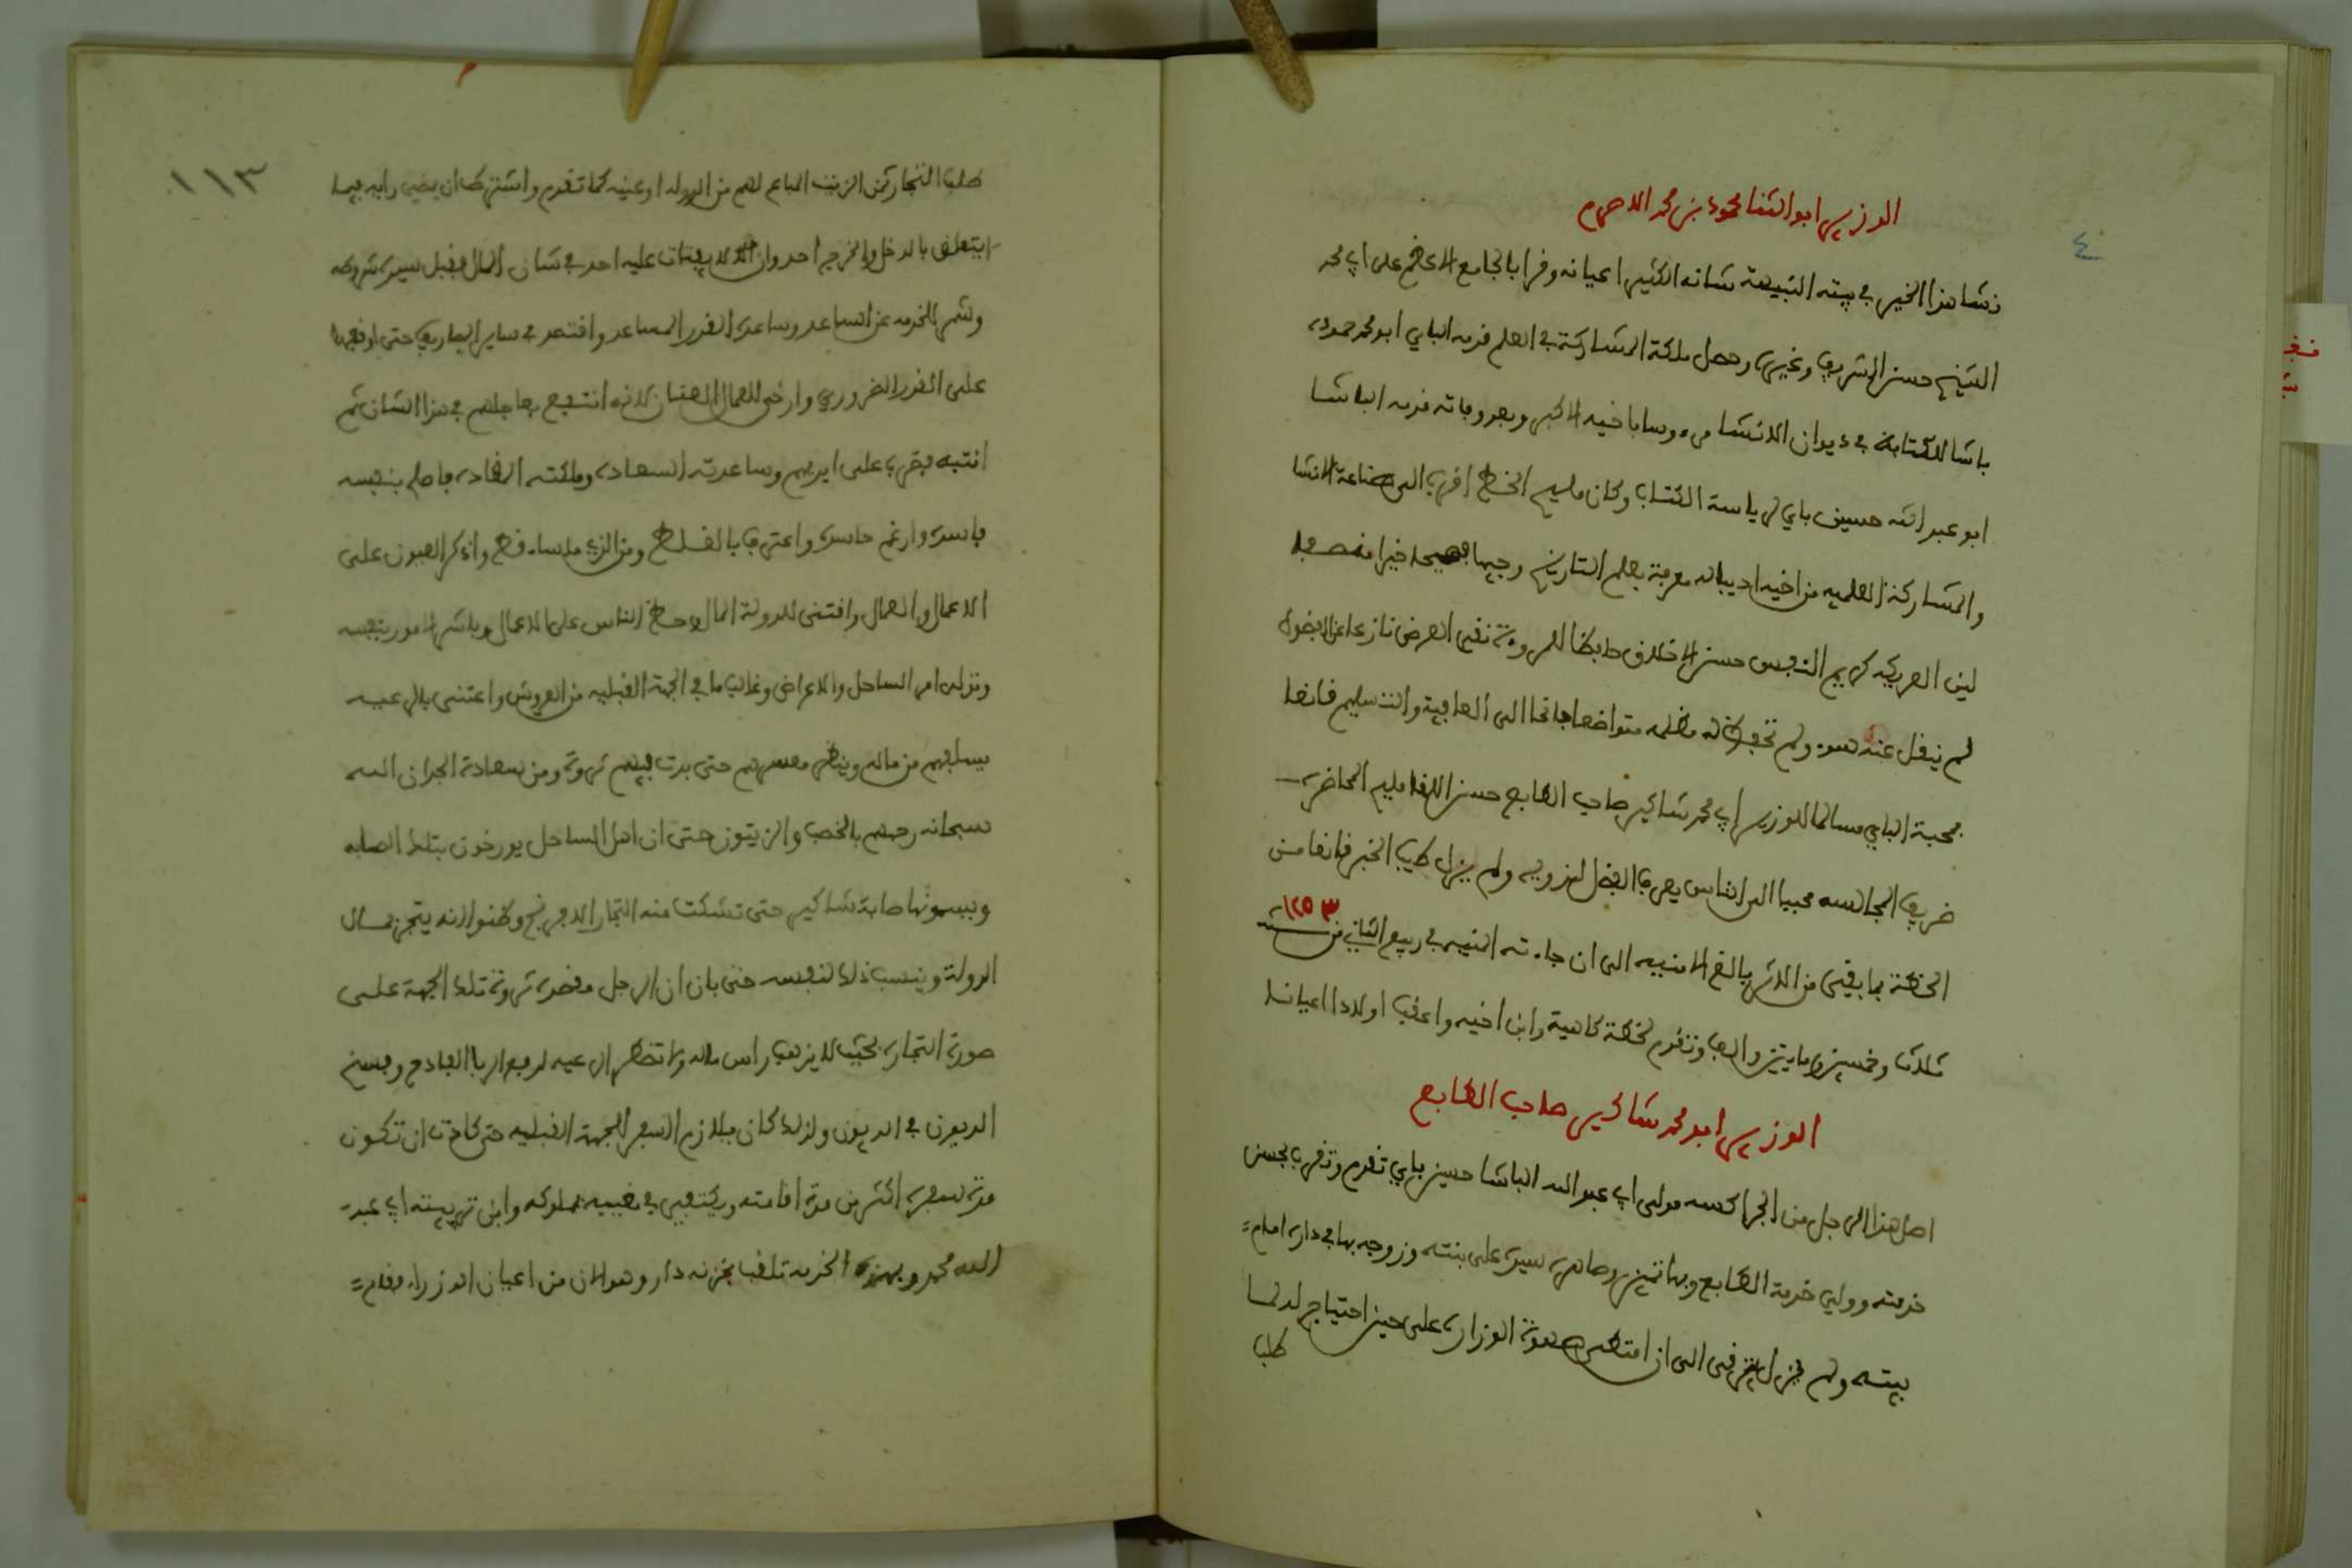 ٤
الوزير ابو الثنا محمود بن محمد الاصرم
نشا هذا الخير في بيته النبيهة شانه الكثير اعيانه وقرا بالجامع الاعظم على ابي محمد
الشيخ حسن الشريف وغيره وحصل ملكة المشاركة في العلم قدمه الباي ابو محمد حمودة
باشا للكتابة في ديوان الانشا مرءوسا باخيه الاكبر وبعد وفاته قدمه الباشا
ابو عبد الله حسين باي لرياسة الكتاب وكان مليح الخط اقرب الى صناعة الانشا
والمشاركة العلمية من اخيه اديبا له معرفة بعلم التاريخ وجيها فصيحا خيرا منصفا
لين العريكة كريم النفس حسن الاخلاق حافظا للمروءة نقي العرض نازعا عن الفضول
لم ينقل عنه سوء ولم تحفظ له مظلمه متواضعا جانحا الى العافية والتسليم قانعا
بمحبة الباي مسالما للوزير ابي محمد شاكير صاحب الطابع حسن اللقا مليح المحاضرة
ظريف المجالسه محببا الى الناس يعرف الفضل لذويه ولم يزل طيب الخبر قانعا من
الخطة بما بقي من الاثر بالغ الامنيه الى ان جاءته المنيه في ربيع الثاني من سنة ١٢٥٣
ثلاث وخمسين ومايتين والف وتقدم لخطة كاهية وابن اخيه واعقب اولادا اعيانا
الوزير ابو محمد شاكير صاحب الطابع
اصل هذا الرجل من الجراكسه مولى ابي عبد الله الباشا حسين باي تقدم وتقرب بحسن
خدمته وولي خدمة الطابع وبها تميز وصاهره سيده على بنته وزوجه بها في داره امام
بيته ولم يزل يترقى الى ان امتطى صهوة الوزارة على حين احتياج لدلما
طلب
١١٣
طلب التجار ثمن الزيت المباع لهم من الدولة او عينه كما تقدم واشترط ان يمضي رايه فيما
يتعلق بالدخل والخرج احد وان لا يفتات عليه احد في شان المال فقبل سيده شروطه
وشمر للخدمه عن الساعد وساعده القدر المساعد واقتصر في ساير المصاريف حتى اوقفها
على القدر الضروري وارخى للعمال العنان لانه انتفع بهاهم في هذا الشان ثم
انتبه فضرب على ايديهم وساعدته السعادة وملكته القادة فاصلح بنفسه
فاسده وارغم حاسده واعترف بالغلط ومن الذي ما ساء قط واذكى العيون على
الاعمال والعمال واقتنى للدولة المال وحط الناس على الاعمال وباشر الامور بنفسه
وتولى امر الساحل والاعراض وغالب ما في الجهة القبليه من العروش واعتنى بالرعيه
يسلفهم من ماله وينظر معسرهم حتى بدت فيهم ثروة ومن سعادة الجد ان الله
سبحانه رحمهم بالخصب والزيتون حتى ان اهل الساحل يورخون بتلك الصابه
ويسمونها صابة شاكير حتى تشكت منه التجار الافرنج وظنوا انه يتجر بمال
الدولة وينسب ذلك لنفسه حتى بان ان الرجل مقصده ثروة تلك الجهة على
صورة التجارة بحيث لا يذهب راس ماله ولا تضطر الرعيه لدفع الربا الفادح وفسخ
الديون في الديون ولذلك كان يلازم السفر للجهة القبليه حتى كادت ان تكون
مدة سفره اكثر من مدة اقامته ويكتفي في مغيبه بمملوكه وابن تربيته ابي عبد
الله محمد وبهذه الخدمه تلقب بخزنه دار وهو الان من اعيان الوزراء فقام